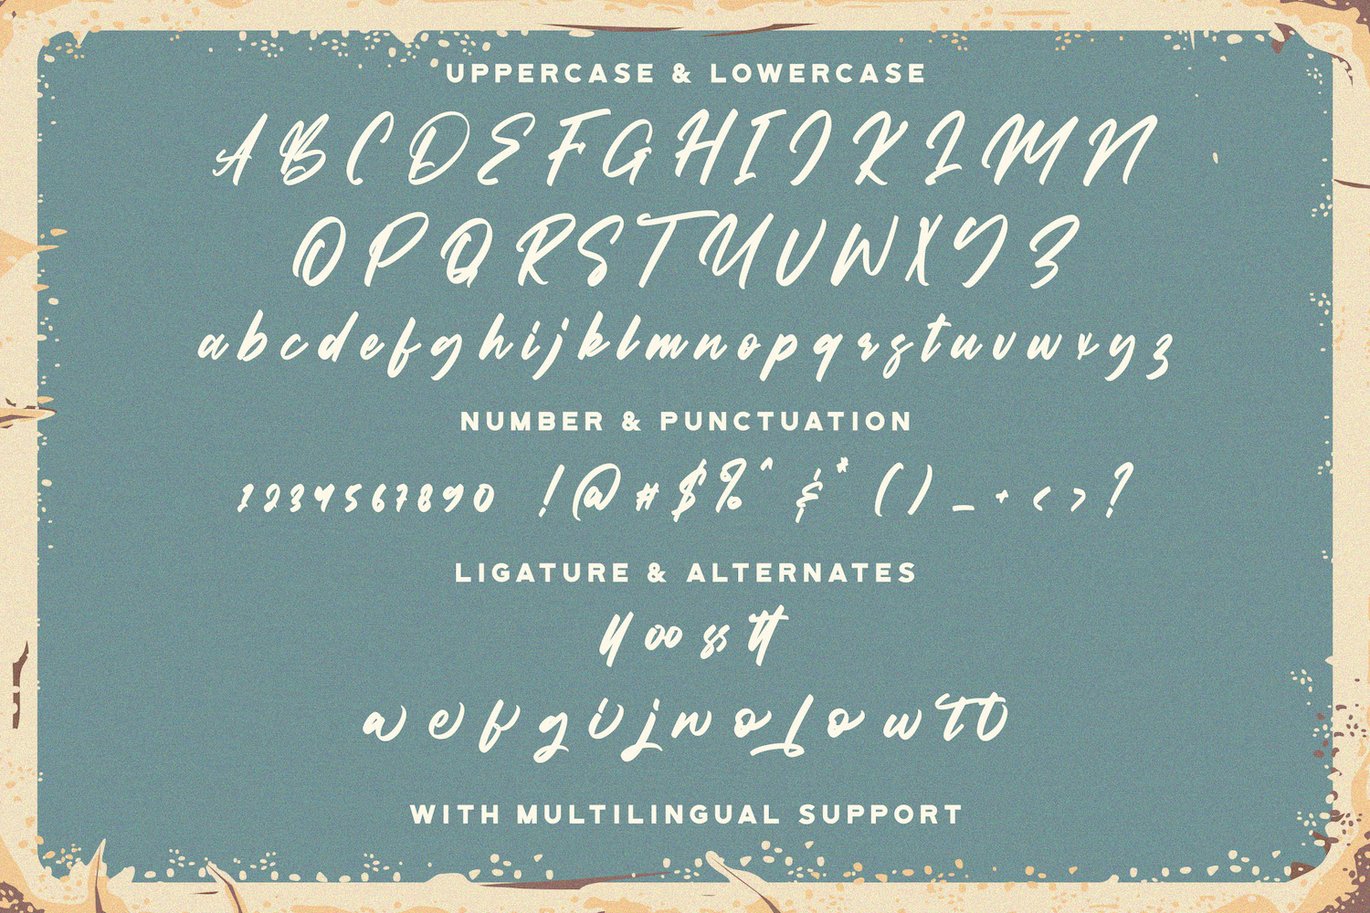 UPPERCASE & LOWERCASE
A B C D E F G H I J K L M N
O P Q R S T U V W X Y Z
a b c d e f g h i j k l m n o p q r s t u v w x y z
NUMBER & PUNCTUATION
1 2 3 4 5 6 7 8 9 0 ! @ # $ % ^ & * ( ) _ + < > ?
LIGATURE & ALTERNATES
ll oo ss tt
a e f g i j n o
WITH MULTILINGUAL SUPPORT